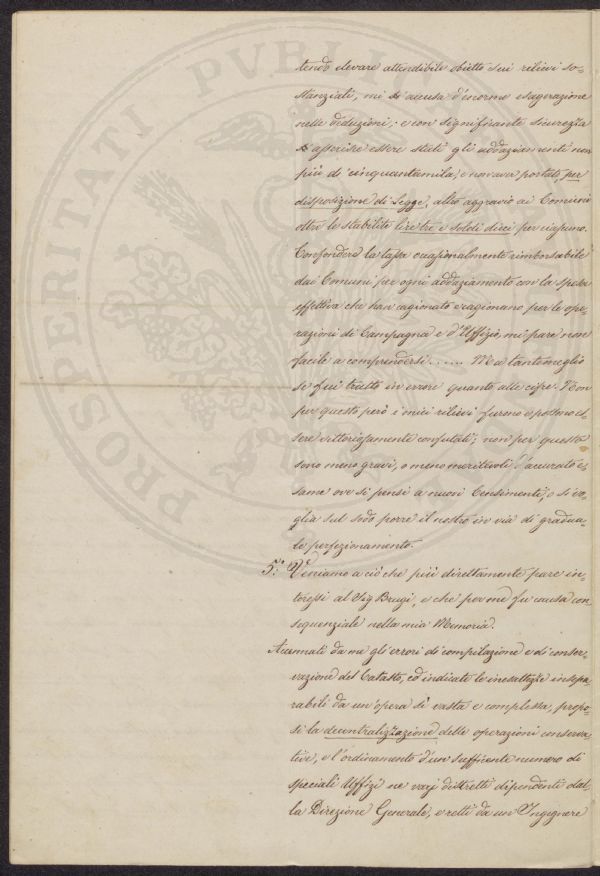 tendo elevare attendibile obietto sui rilievi so-
stanziali, mi si accusa d'enorme esagerazione
nelle deduzioni; e con significante sicurezza
si asserisce essere stati gli addaziamenti non
più di cinquantamila, e non aver portato, per
disposizione di Legge, altro aggravio ai Comuni
oltre le stabilite lire tre e soldi dieci per ciascuno.
Confondere la tassa occasionalmente rimborsabile
dai Comuni per ogni addaziamento con la spesa
effettiva che han cagionato e cagionano per le ope-
razioni di Campagna e d'Uffizio, mi pare non
facile a comprendersi...... Ma tanto meglio
se fui tratto in errore quanto alle cifre. Non
per questo però i miei rilievi furono o possono es-
sere vittoriosamente confutati; non per questo
sono meno gravi, o meno meritevoli d'accurato e-
same ove si pensi a nuovi Censimenti, o si vo-
glia sul sodo porre il nostro in via di gradua-
le perfezionamento.
5.° Veniamo a ciò che più direttamente pare in-
teressi al Sig Brugi, e che per me fu causa con-
sequenziale nella mia Memoria.
Accennati da me gli errori di compilazione e di conser-
vazione del Catasto, ed indicate le inesattezze insepa-
rabili da un'opera sì vasta e complessa, propo-
si la decentralizzazione delle operazioni conserva-
tive, e l'ordinamento d'un sufficiente numero di
speciali Uffizi ne varj distretti dipendenti dal-
la Direzione Generale, e retti da un Ingegnere
PROSPERITATI PVBLI